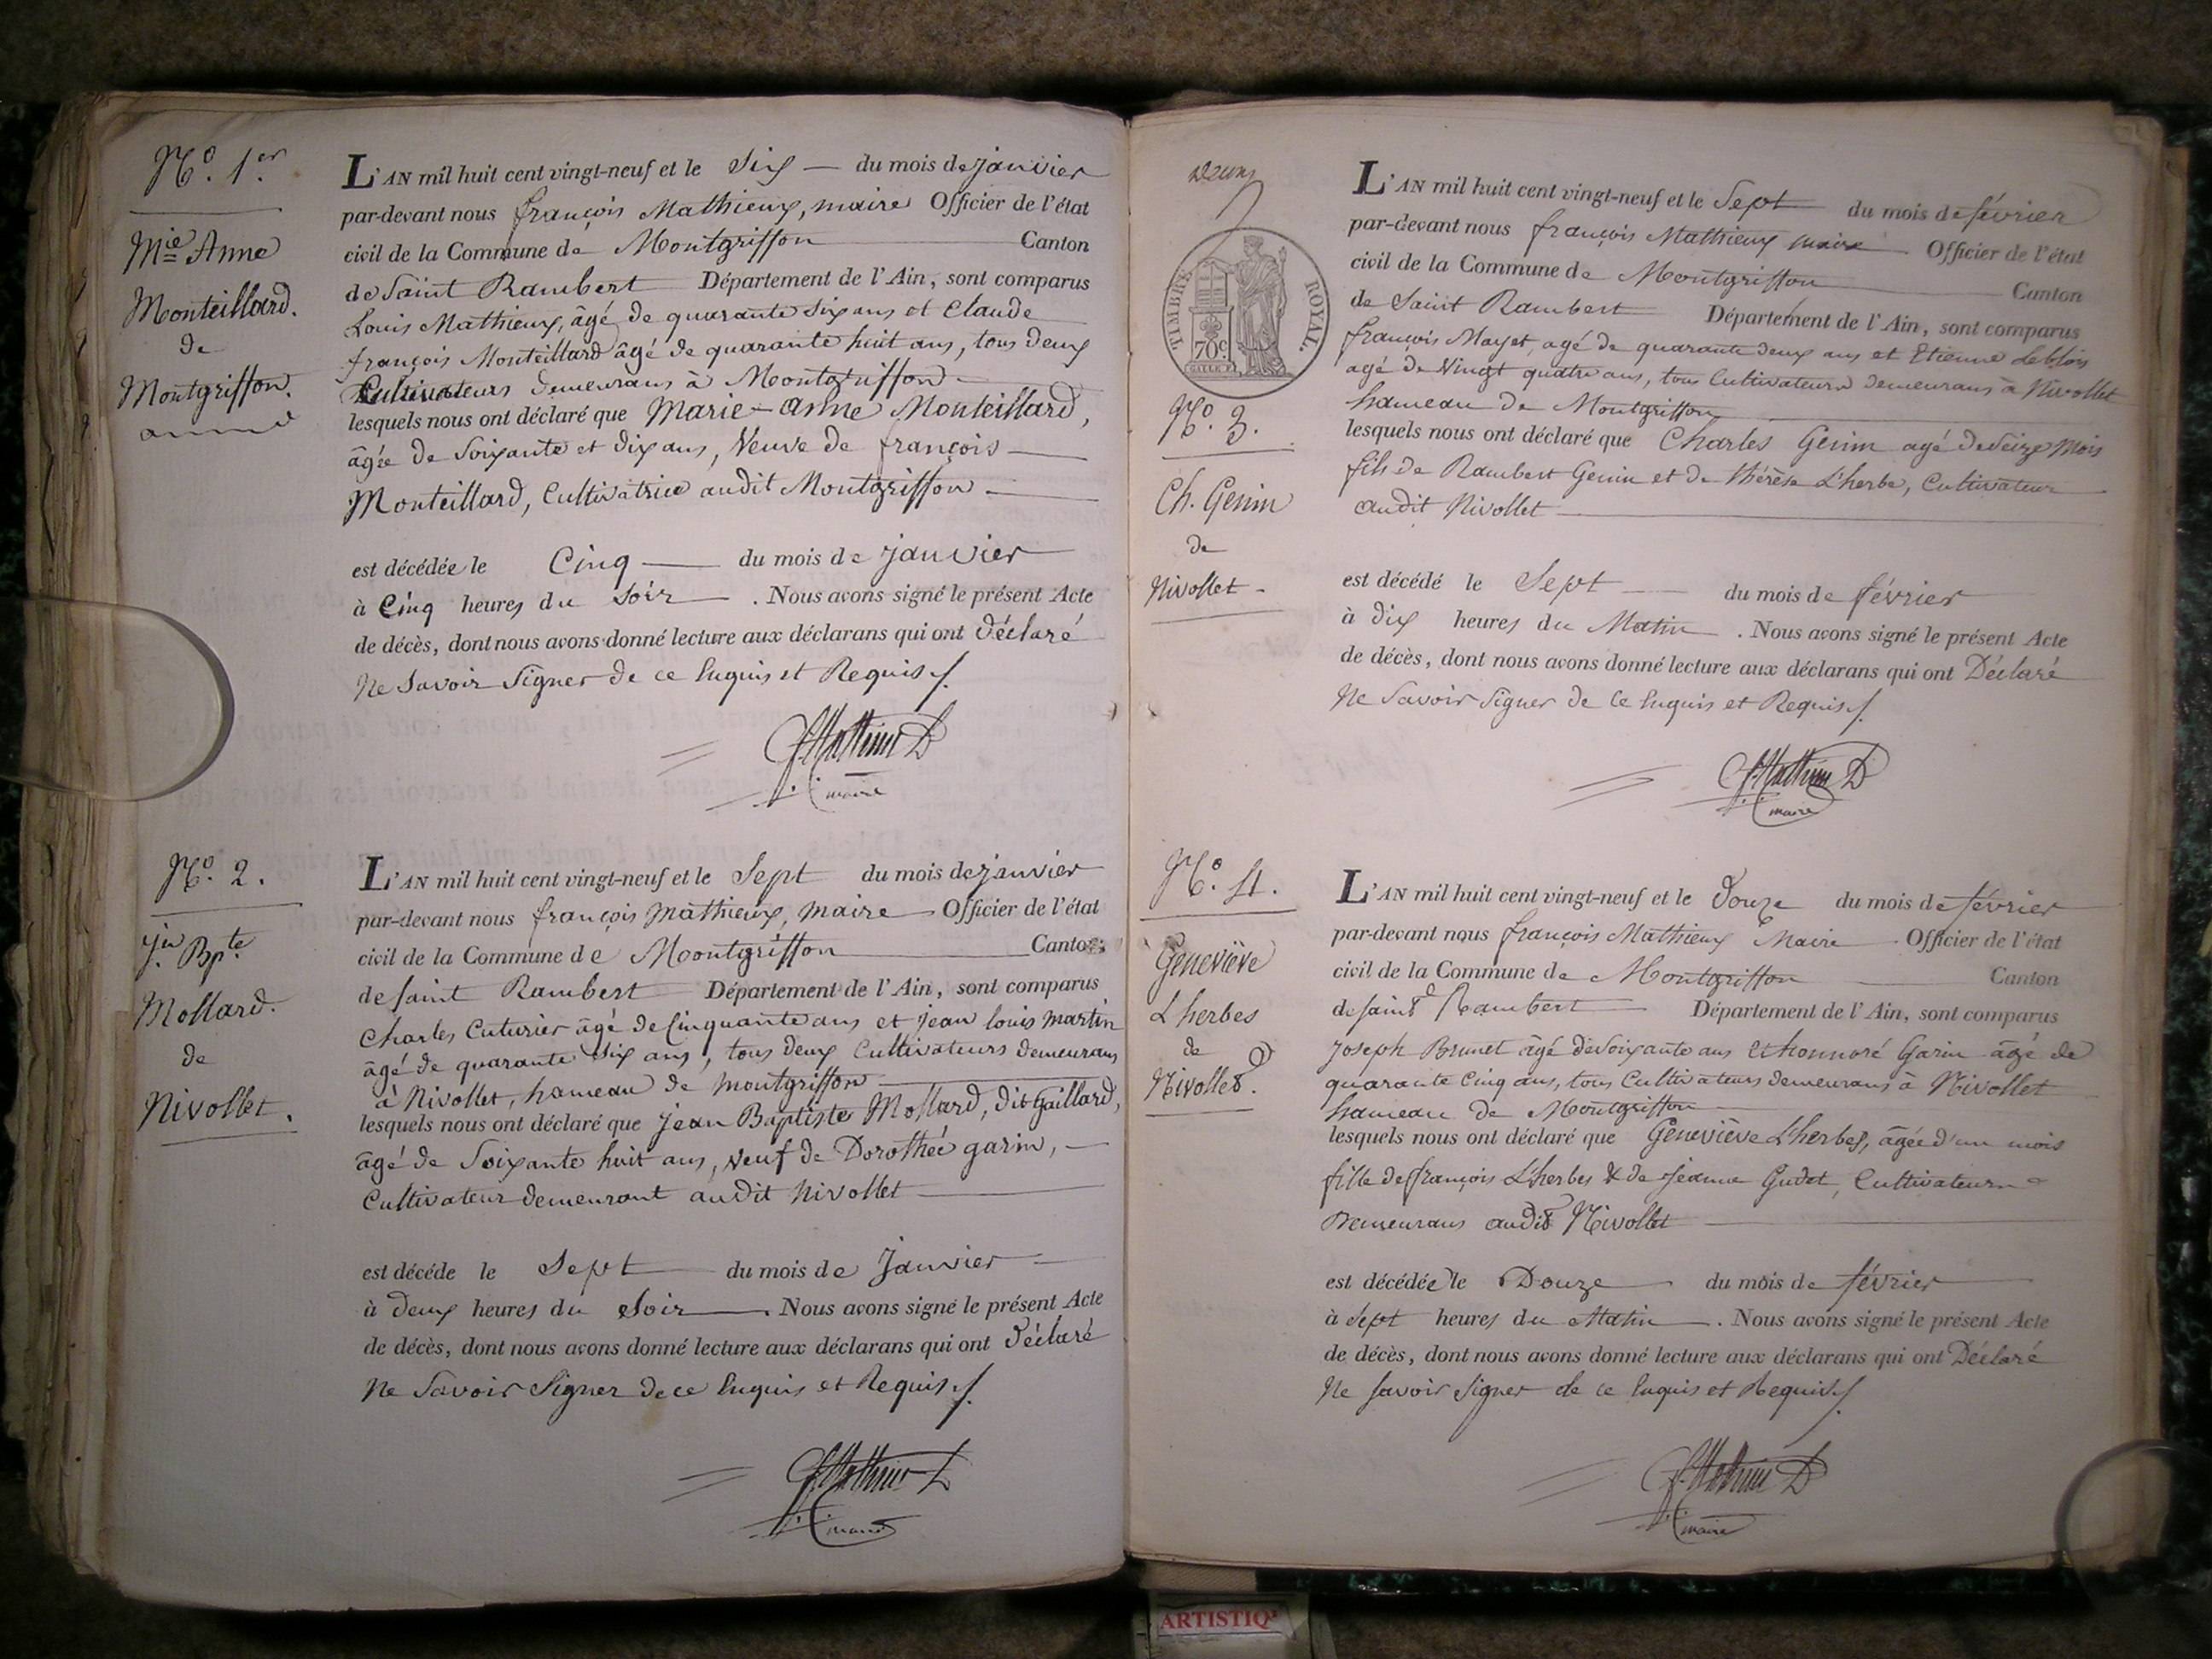 N.º 1.er
M.ie Anne
Monteillard.
de
Montgriffon.
L'AN mil huit cent vingt-neuf et le Six du mois de janvier
par-devant nous françois Mathieux, maire Officier de l'état
civil de la Commune de Montgriffon Canton
de Saint Rambert Département de l'Ain, sont comparus
Louis Mathieux, âgé de quarante six ans et Claude
françois Monteillard âgé de quarante huit ans, tous deux
Cultivateurs demeurans à Montgriffon
lesquels nous ont déclaré que Marie-Anne Monteillard,
âgée de Soixante et dix ans, Veuve de françois
Monteillard, Cultivatrice audit Montgriffon
est décédée le Cinq du mois de janvier
à Cinq heures du Soir. Nous avons signé le présent Acte
de décès, dont nous avons donné lecture aux déclarans qui ont déclaré
Ne Savoir Signer de ce Enquis et Requis
F. Mathieux
maire
N.º 2.
J.n Bp.te
Mollard.
de
Nivollet.
L'AN mil huit cent vingt-neuf et le Sept du mois de janvier
par-devant nous françois Mathieux, Maire Officier de l'état
civil de la Commune de Montgriffon Canton
de Saint Rambert Département de l'Ain, sont comparus
Charles Cuturier âgé de Cinquante ans et jean louis martin
âgé de quarante six ans, tous deux Cultivateurs demeurans
à Nivollet, hameau de montgriffon
lesquels nous ont déclaré que jean Baptiste Mollard, dit Gaillard,
âgé de Soixante huit ans, veuf de Dorothée garin,
Cultivateur demeurant audit Nivollet
est décéde le Sept du mois de Janvier
à deux heures du Soir. Nous avons signé le présent Acte
de décès, dont nous avons donné lecture aux déclarans qui ont déclaré
Ne Savoir Signer de ce Enquis et Requis
F. Mathieux
maire
Deux
TIMBRE ROYAL.
70c
N.º 3.
Ch. Genin
de
Nivollet
L'AN mil huit cent vingt-neuf et le Sept du mois de février
par-devant nous françois Mathieux maire Officier de l'état
civil de la Commune de Montgriffon Canton
de Saint Rambert Département de l'Ain, sont comparus
françois Mayet, agé de quarante deux ans et Etienne Leblois
agé de Vingt quatre ans, tous Cultivateurs demeurans à Nivollet
hameau de Montgriffon
lesquels nous ont déclaré que Charles Genin agé de Seize Mois
fils de Rambert Genin et de thérèse L'herbe, Cultivateur
audit Nivollet
est décédé le Sept du mois de février
à dix heures du Matin. Nous avons signé le présent Acte
de décès, dont nous avons donné lecture aux déclarans qui ont Déclaré
Ne Savoir Signer de ce Enquis et Requis
F. Mathieux
maire
N.º 4.
Geneviève
Lherbes
de
Nivollet.
L'AN mil huit cent vingt-neuf et le douze du mois de février
par-devant nous françois Mathieux Maire Officier de l'état
civil de la Commune de Montgriffon Canton
de saint Rambert Département de l'Ain, sont comparus
Joseph Brunet âgé de soixante ans et honnoré Garin âgé de
quarante Cinq ans, tous Cultivateurs demeurans à Nivollet
hameau de Montgriffon
lesquels nous ont déclaré que Geneviève L'herbes, âgée d'un mois
fille de françois L'herbes & de Jeanne Gudet, Cultivateurs
Demeurans audit Nivollet
est décédée le Douze du mois de février
à Sept heures du Matin. Nous avons signé le présent Acte
de décès, dont nous avons donné lecture aux déclarans qui ont Déclaré
Ne savoir Signer de ce Enquis et Requis
F. Mathieux
maire
ARTISTIQ